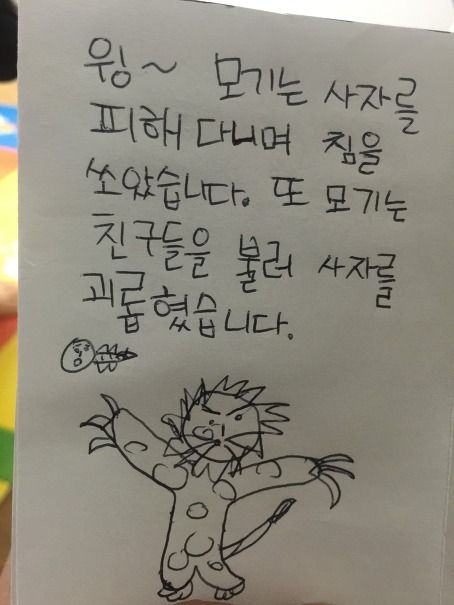 윙~ 모기는 사자를
피해 다니며 침을
쏘았습니다. 또 모기는
친구들을 불러 사자를
괴롭혔습니다.